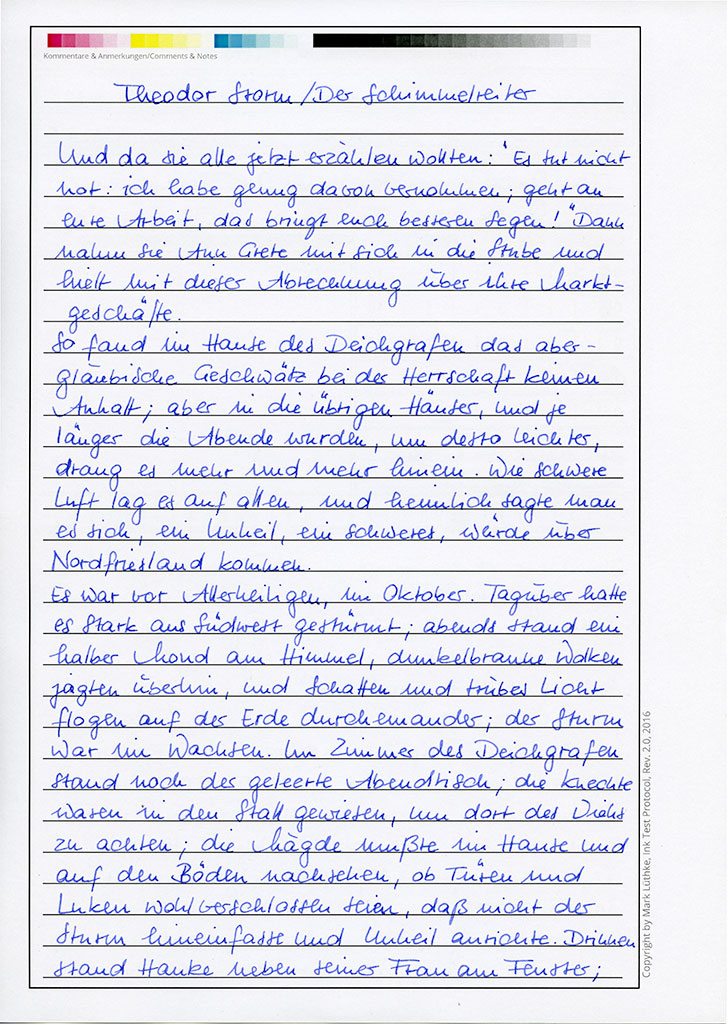 Kommentare & Anmerkungen/Comments & Notes
Theodor Storm / Der Schimmelreiter
Und da sie alle jetzt erzählen wollten: "Es tut nicht
not: ich habe genug davon vernommen; geht an
eure Arbeit, das bringt euch besseren Segen!" Dann
nahm sie Ann Grete mit sich in die Stube und
hielt mit dieser Abrechnung über ihre Markt-
geschäfte.
So fand im Hause des Deichgrafen das aber-
gläubische Geschwätz bei der Herrschaft keinen
Anhalt; aber in die übrigen Häuser, und je
länger die Abende wurden, um desto leichter,
drang es mehr und mehr hinein. Wie schwere
Luft lag es auf allen, und heimlich sagte man
es sich, ein Unheil, ein schweres, würde über
Nordfriesland kommen.
Es war vor Allerheiligen, im Oktober. Tagüber hatte
es stark aus Südwest gestürmt; abends stand ein
halber Mond am Himmel, dunkelbraune Wolken
jagten überhin, und Schatten und trübes Licht
flogen auf der Erde durcheinander; der Sturm
war im Wachsen. Im Zimmer des Deichgrafen
stand noch der geleerte Abendtisch; die Knechte
waren in den Stall gewiesen, um dort des Viehs
zu achten; die Mägde mußte im Hause und
auf den Böden nachsehen, ob Türen und
Luken wohlverschlossen seien, daß nicht der
Sturm hineinfasse und Unheil anrichte. Drinnen
stand Hauke neben seiner Frau am Fenster;
Copyright by Mark Lüthke, Ink Test Protocol, Rev. 2.0, 2016